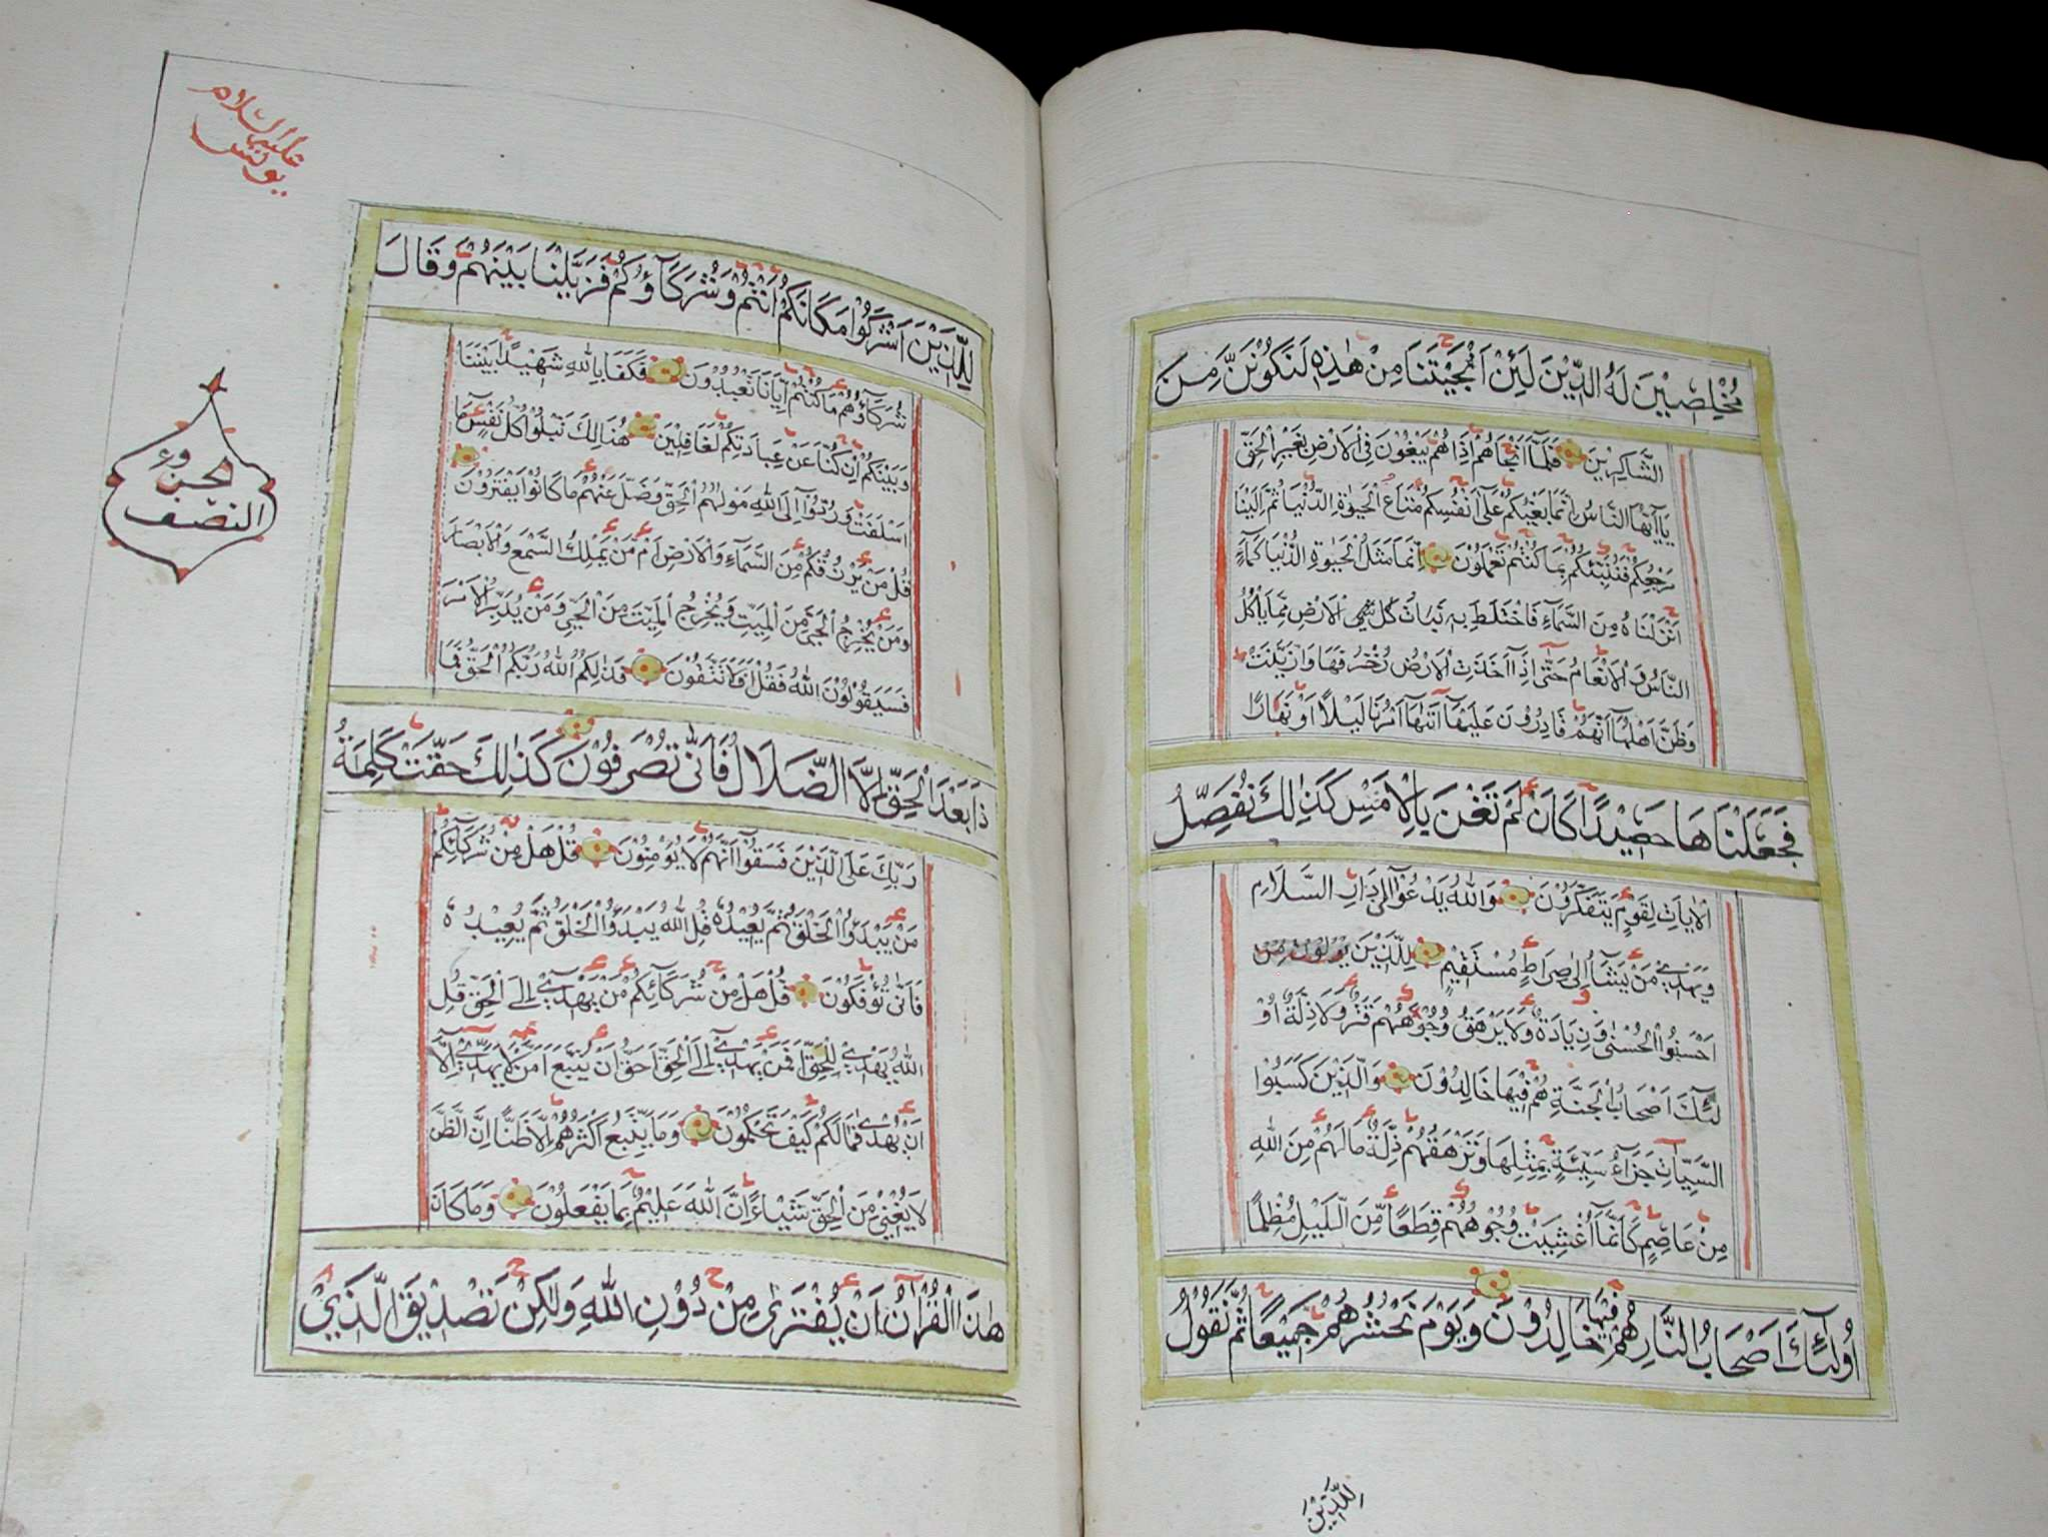 مُخْلِصِيْنَ لَهُ الدِّيْنَ لَئِنْ اَنْجَيْتَنَا مِنْ هٰذِهٖ لَنَكُوْنَنَّ مِنَ
الشَّاكِرِيْنَ فَلَمَّآ اَنْجَاهُمْ اِذَا هُمْ يَبْغُوْنَ فِي الْاَرْضِ بِغَيْرِ الْحَقِّ
يَآ اَيُّهَا النَّاسُ اِنَّمَا بَغْيُكُمْ عَلٰٓى اَنْفُسِكُمْ مَتَاعَ الْحَيٰوةِ الدُّنْيَا ثُمَّ اِلَيْنَا
مَرْجِعُكُمْ فَنُنَبِّئُكُمْ بِمَا كُنْتُمْ تَعْمَلُوْنَ اِنَّمَا مَثَلُ الْحَيٰوةِ الدُّنْيَا كَمَآءٍ
اَنْزَلْنَاهُ مِنَ السَّمَآءِ فَاخْتَلَطَ بِهٖ نَبَاتُ كل شئ الْاَرْضِ مِمَّا يَاْكُلُ
النَّاسُ وَالْاَنْعَامُ حَتّٰى اِذَآ اَخَذَتِ الْاَرْضُ زُخْرُفَهَا وَازَّيَّنَتْ
وَظَنَّ اَهْلُهَآ اَنَّهُمْ قَادِرُوْنَ عَلَيْهَآ اَتٰهَآ اَمْرُنَا لَيْلًا اَوْ نَهَارًا
فَجَعَلْنَاهَا حَصِيْدًا كَاَنْ لَمْ تَغْنَ بِالْاَمْسِ كَذٰلِكَ نُفَصِّلُ
الْاٰيَاتِ لِقَوْمٍ يَتَفَكَّرُوْنَ وَاللّٰهُ يَدْعُوْآ اِلٰى دَارِ السَّلَامِ
وَيَهْدِيْ مَنْ يَشَآءُ اِلٰى صِرَاطٍ مُسْتَقِيْمٍ لِلَّذِيْنَ
اَحْسَنُوا الْحُسْنٰى وَزِيَادَةٌ وَلَا يَرْهَقُ وُجُوْهَهُمْ قَتَرٌ وَلَا ذِلَّةٌ اُوْ
لٰٓئِكَ اَصْحَابُ الْجَنَّةِ هُمْ فِيْهَا خَالِدُوْنَ وَالَّذِيْنَ كَسَبُوا
السَّيِّاٰتِ جَزَآءُ سَيِّئَةٍ بِمِثْلِهَا وَتَرْهَقُهُمْ ذِلَّةٌ مَا لَهُمْ مِنَ اللّٰهِ
مِنْ عَاصِمٍ كَاَنَّمَآ اُغْشِيَتْ وُجُوْهُهُمْ قِطَعًا مِّنَ الَّيْلِ مُظْلِمًا
اُولٰٓئِكَ اَصْحَابُ النَّارِ هُمْ فِيْهَا خَالِدُوْنَ وَيَوْمَ نَحْشُرُهُمْ جَمِيْعًا ثُمَّ نَقُوْلُ
لِلَّذِيْنَ
عليه السلام
يونس
الجزوء
النصف
لِلَّذِيْنَ اَشْرَكُوْا مَكَانَكُمْ اَنْتُمْ وَشُرَكَآؤُكُمْ فَزَيَّلْنَا بَيْنَهُمْ وَقَالَ
شُرَكَآؤُهُمْ مَا كُنْتُمْ اِيَّانَا تَعْبُدُوْنَ فَكَفٰى بِاللّٰهِ شَهِيْدًا بَيْنَنَا
وَبَيْنَكُمْ اِنْ كُنَّا عَنْ عِبَادَتِكُمْ لَغَافِلِيْنَ هُنَالِكَ تَبْلُوْا كُلُّ نَفْسٍ مَا
اَسْلَفَتْ وَرُدُّوْآ اِلَى اللّٰهِ مَوْلٰهُمُ الْحَقِّ وَضَلَّ عَنْهُمْ مَا كَانُوْا يَفْتَرُوْنَ
قُلْ مَنْ يَرْزُقُكُمْ مِّنَ السَّمَآءِ وَالْاَرْضِ اَمْ مَنْ يَمْلِكُ السَّمْعَ وَالْاَبْصَارَ
وَمَنْ يُخْرِجُ الْحَيَّ مِنَ الْمَيِّتِ وَيُخْرِجُ الْمَيِّتَ مِنَ الْحَيِّ وَمَنْ يُدَبِّرُ الْاَمْرَ
فَسَيَقُوْلُوْنَ اللّٰهُ فَقُلْ اَفَلَا تَتَّقُوْنَ فَذٰلِكُمُ اللّٰهُ رَبُّكُمُ الْحَقُّ فَمَا
ذَا بَعْدَ الْحَقِّ اِلَّا الضَّلَالُ فَاَنّٰى تُصْرَفُوْنَ كَذٰلِكَ حَقَّتْ كَلِمَةُ
رَبِّكَ عَلَى الَّذِيْنَ فَسَقُوْآ اَنَّهُمْ لَا يُؤْمِنُوْنَ قُلْ هَلْ مِنْ شُرَكَآئِكُمْ
مَنْ يَبْدَؤُا الْخَلْقَ ثُمَّ يُعِيْدُهٗ قُلِ اللّٰهُ يَبْدَؤُا الْخَلْقَ ثُمَّ يُعِيْدُهٗ
فَاَنّٰى تُؤْفَكُوْنَ قُلْ هَلْ مِنْ شُرَكَآئِكُمْ مَنْ يَهْدِيْٓ اِلَى الْحَقِّ قُلِ
اللّٰهُ يَهْدِيْ لِلْحَقِّ اَفَمَنْ يَهْدِيْٓ اِلَى الْحَقِّ اَحَقُّ اَنْ يُتَّبَعَ اَمَّنْ لَا يَهِدِّيْٓ اِلَّآ
اَنْ يُهْدٰى فَمَا لَكُمْ كَيْفَ تَحْكُمُوْنَ وَمَا يَتَّبِعُ اَكْثَرُهُمْ اِلَّا ظَنًّا اِنَّ الظَّنَّ
لَا يُغْنِيْ مِنَ الْحَقِّ شَيْـًٔا اِنَّ اللّٰهَ عَلِيْمٌ بِمَا يَفْعَلُوْنَ وَمَا كَانَ
هٰذَا الْقُرْاٰنُ اَنْ يُفْتَرٰى مِنْ دُوْنِ اللّٰهِ وَلٰكِنْ تَصْدِيْقَ الَّذِيْ